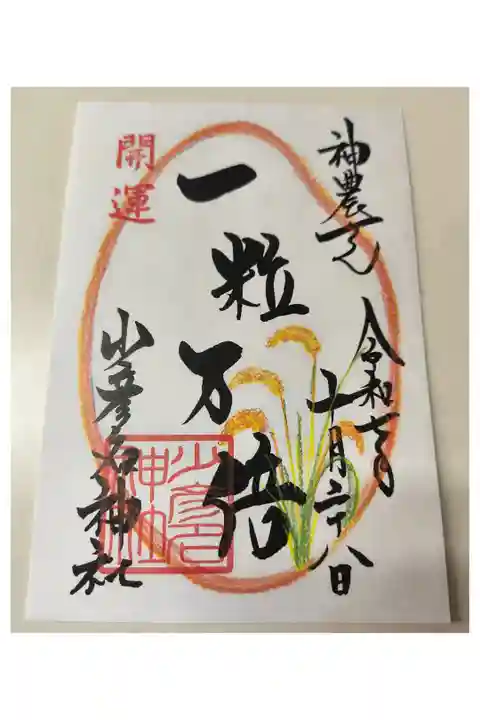 神農さん
令和七年
二月二十八日
一粒万倍
開運
少彦名神社
少彦名
神社